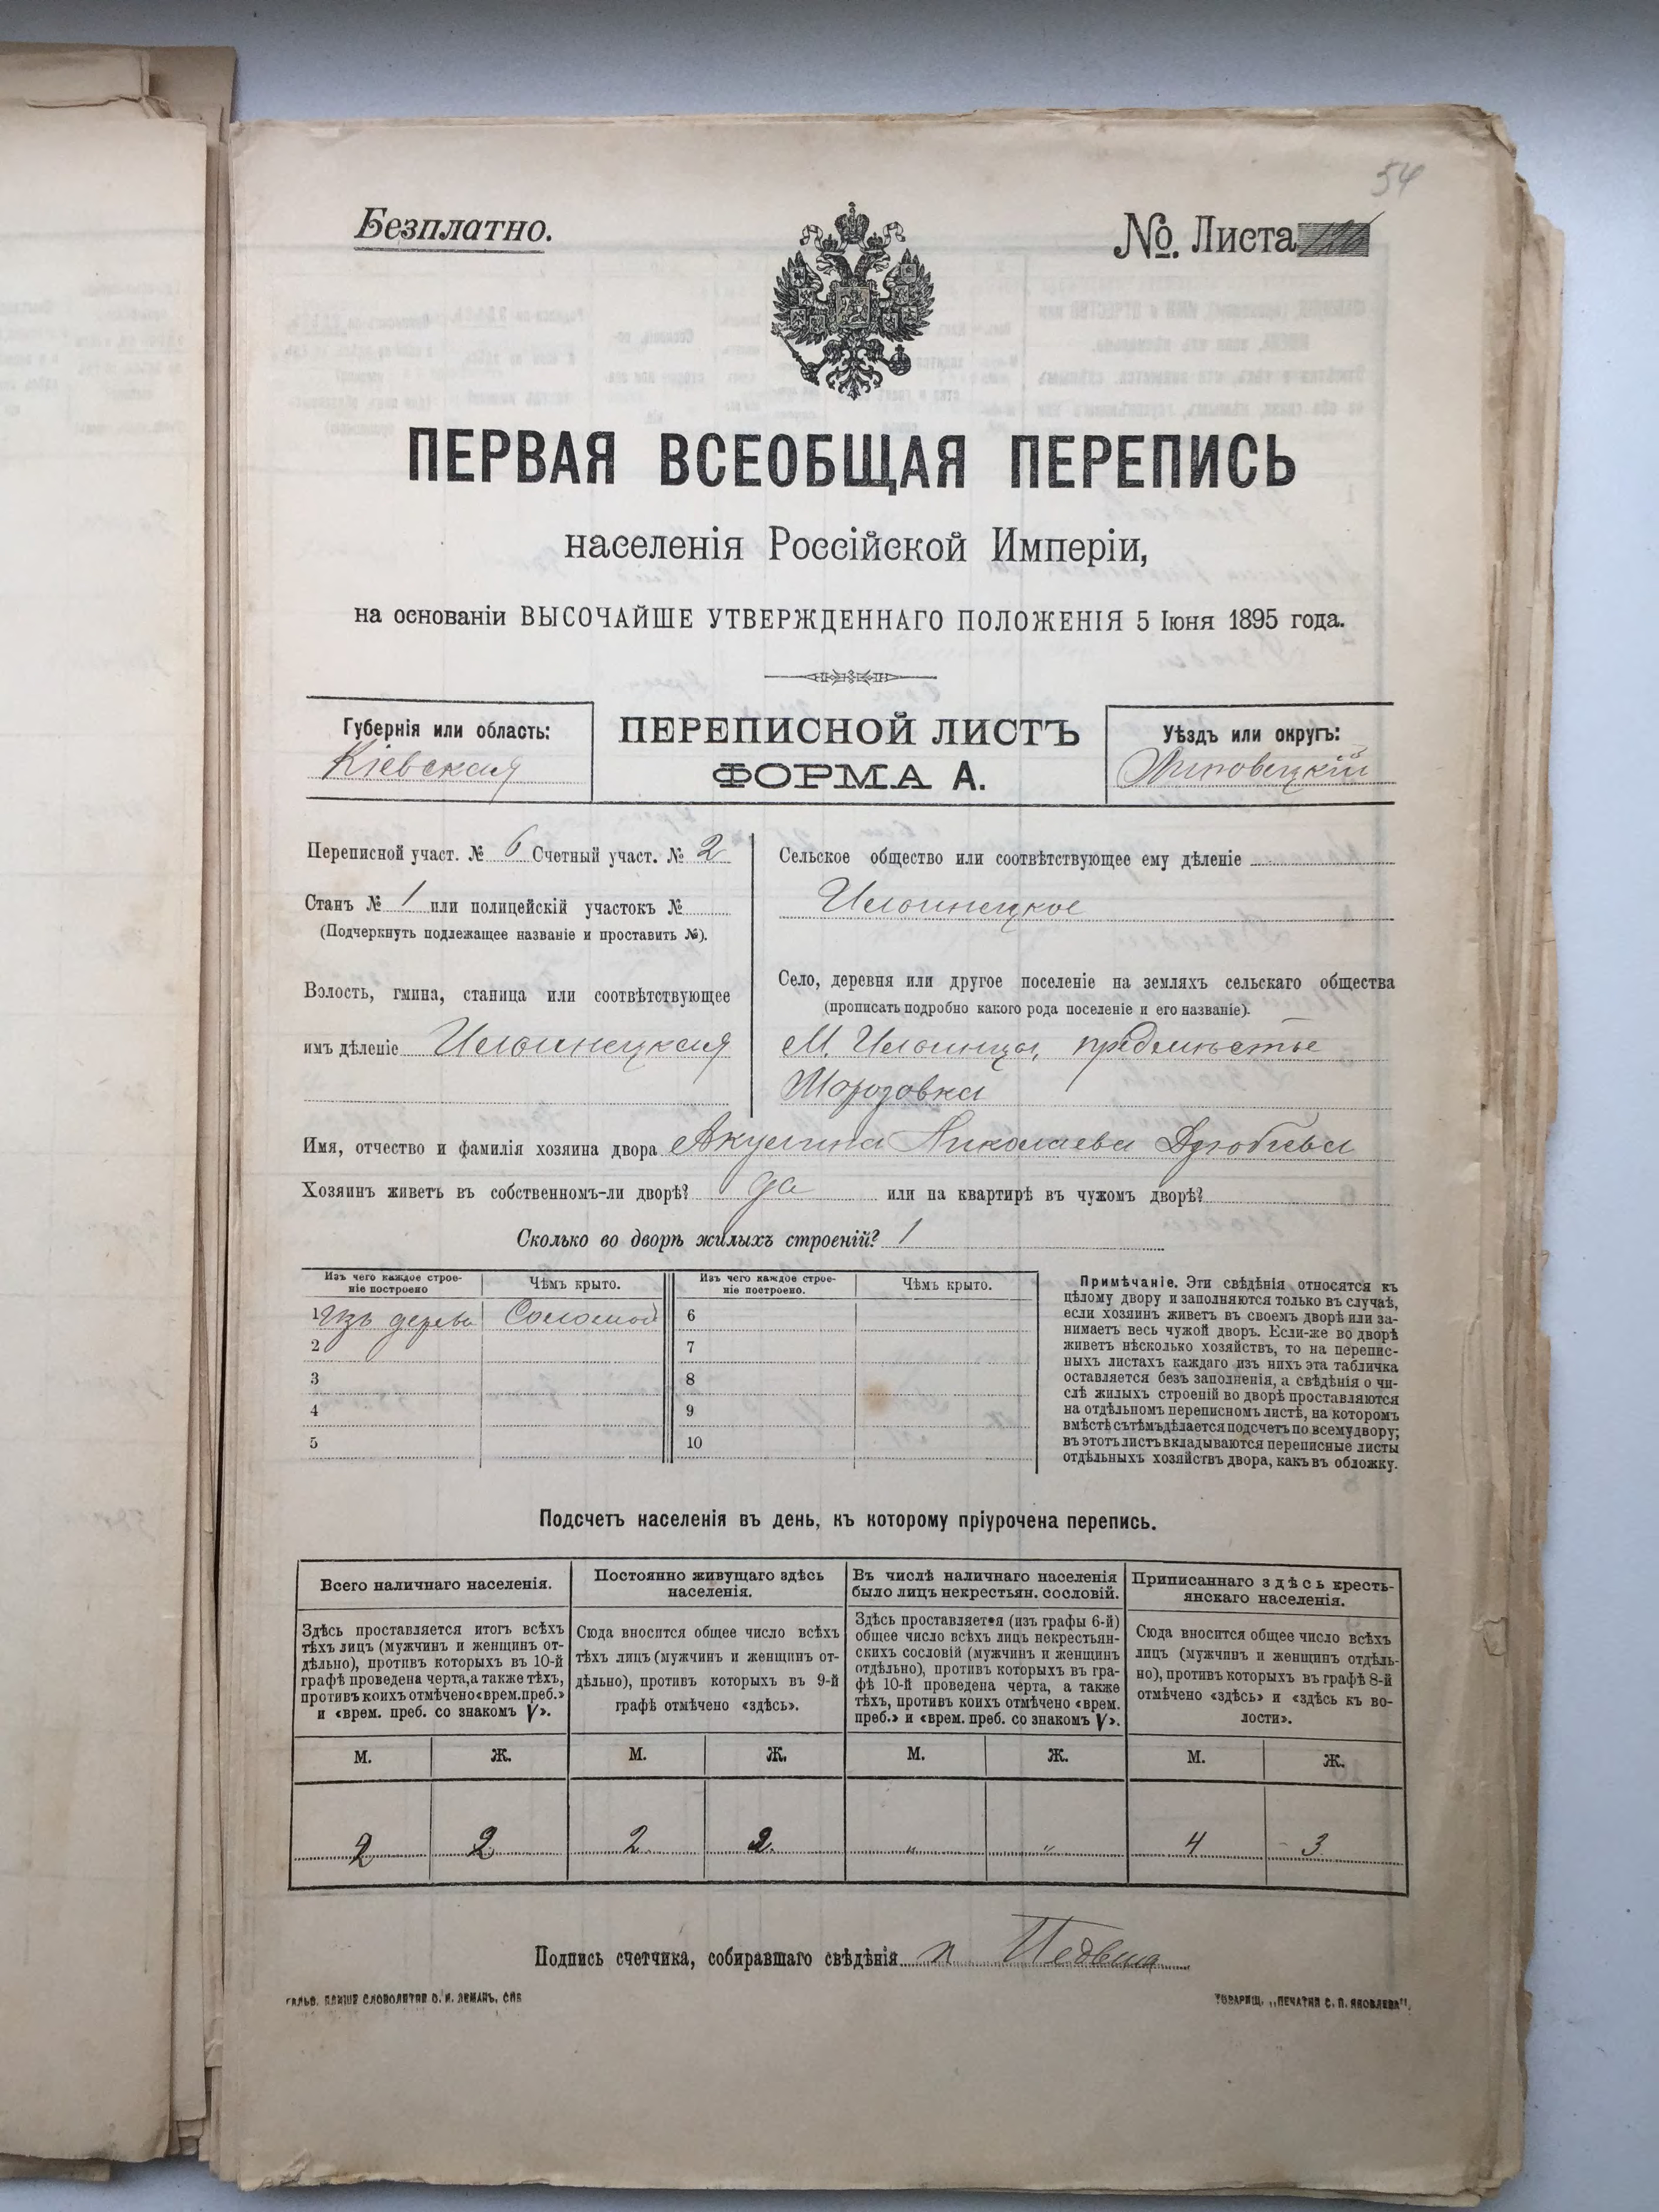 54
Безплатно.
№. Листа
ПЕРВАЯ ВСЕОБЩАЯ ПЕРЕПИСЬ
населенія Россійской Имперіи,
на основаніи ВЫСОЧАЙШЕ УТВЕРЖДЕННАГО ПОЛОЖЕНІЯ 5 Іюня 1895 года.
Губернія или область:
Кіевская
ПЕРЕПИСНОЙ ЛИСТЪ
ФОРМА А.
Уѣздъ или округъ:
Липовецкій
Переписной участ. № 6 Счетный участ. № 2
Станъ № 1 или полицейскій участокъ №
(Подчеркнуть подлежащее названіе и проставить №).
Волость, гмина, станица или соотвѣтствующее
имъ дѣленіе Ильинецкая
Сельское общество или соотвѣтствующее ему дѣленіе
Ильинецкое
Село, деревня или другое поселеніе на земляхъ сельскаго общества
(прописать подробно какого рода поселеніе и его названіе).
М. Ильинцы, предмѣстье
Морозовка
Имя, отчество и фамилія хозяина двора Акулина Николаева Дзюбѣва
Хозяинъ живетъ въ собственномъ-ли дворѣ? да или на квартирѣ въ чужомъ дворѣ?
Сколько во дворѣ жилыхъ строеній? 1
Изъ чего каждое строе-
ніе построено
Чѣмъ крыто.
Изъ чего каждое строе-
ніе построено.
Чѣмъ крыто.
1 Изъ дерева Соломой 6
2 7
3 8
4 9
5 10
Примѣчаніе. Эти свѣдѣнія относятся къ
цѣлому двору и заполняются только въ случаѣ,
если хозяинъ живетъ въ своемъ дворѣ или за-
нимаетъ весь чужой дворъ. Если-же во дворѣ
живетъ нѣсколько хозяйствъ, то на перепис-
ныхъ листахъ каждаго изъ нихъ эта табличка
оставляется безъ заполненія, а свѣдѣнія о чи-
слѣ жилыхъ строеній во дворѣ проставляются
на отдѣльномъ переписномъ листѣ, на которомъ
вмѣстѣ съ тѣмъ дѣлается подсчетъ по всему двору;
въ этотъ листъ вкладываются переписные листы
отдѣльныхъ хозяйствъ двора, какъ въ обложку.
Подсчетъ населенія въ день, къ которому пріурочена перепись.
Всего наличнаго населенія.
Здѣсь проставляется итогъ всѣхъ
тѣхъ лицъ (мужчинъ и женщинъ от-
дѣльно), противъ которыхъ въ 10-й
графѣ проведена черта, а также тѣхъ,
противъ коихъ отмѣчено «врем. преб.»
и «врем. преб. со знакомъ V».
Постоянно живущаго здѣсь
населенія.
Сюда вносится общее число всѣхъ
тѣхъ лицъ (мужчинъ и женщинъ от-
дѣльно), противъ которыхъ въ 9-й
графѣ отмѣчено «здѣсь».
Въ числѣ наличнаго населенія
было лицъ некрестьян. сословій.
Здѣсь проставляется (изъ графы 6-й)
общее число всѣхъ лицъ некрестьян-
скихъ сословій (мужчинъ и женщинъ
отдѣльно), противъ которыхъ въ гра-
фѣ 10-й проведена черта, а также
тѣхъ, противъ коихъ отмѣчено «врем.
преб.» и «врем. преб. со знакомъ V».
Приписаннаго здѣсь кресть-
янскаго населенія.
Сюда вносится общее число всѣхъ
лицъ (мужчинъ и женщинъ отдѣль-
но), противъ которыхъ въ графѣ 8-й
отмѣчено «здѣсь» и «здѣсь къ во-
лости».
М. Ж. М. Ж. М. Ж. М. Ж.
2 2 2 2 " " 4 3
Подпись счетчика, собиравшаго свѣдѣнія
ГАЛЬВ. КЛИШЕ СЛОВОЛИТНИ О. И. ЛЕМАНЪ, СПБ
ТОВАРИЩ. „ПЕЧАТНЯ С. П. ЯКОВЛЕВА".